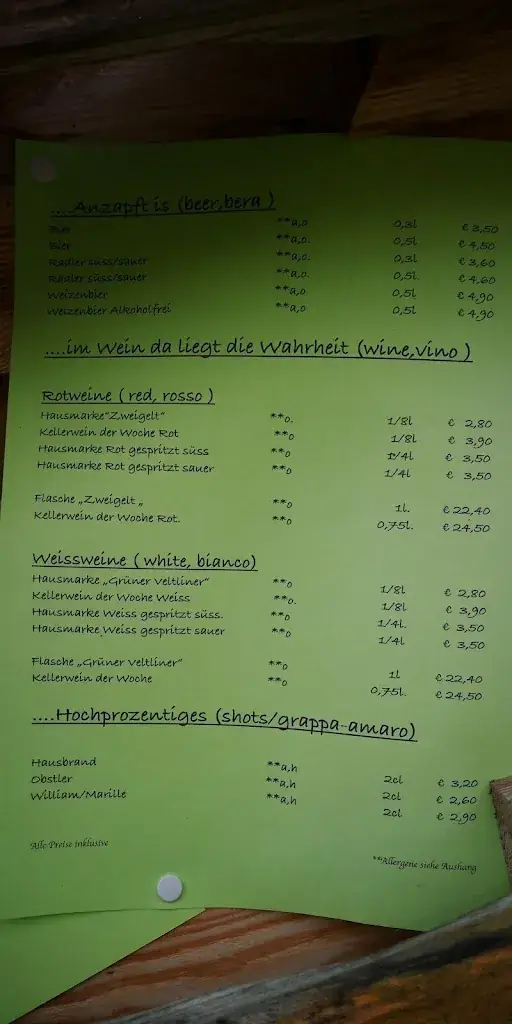 ....Anzapft is (beer,bera )
Bier **a,o 0,3l € 3,50
Bier **a,o. 0,5l € 4,50
Radler süss/sauer **a,o. 0,3l € 3,60
Radler süss/sauer **a,o. 0,5l. € 4,60
Weizenbier **a,o 0,5l € 4,90
Weizenbier Alkoholfrei **a,o 0,5l € 4,90
....im Wein da liegt die Wahrheit (wine,vino )
Rotweine ( red, rosso )
Hausmarke"Zweigelt" **o. 1/8l € 2,80
Kellerwein der Woche Rot **o 1/8l € 3,90
Hausmarke Rot gespritzt süss **o 1/4l € 3,50
Hausmarke Rot gespritzt sauer **o 1/4l € 3,50
Flasche „Zweigelt „ **o 1l. € 22,40
Kellerwein der Woche Rot. **o 0,75l. € 24,50
Weissweine ( white, bianco)
Hausmarke „Grüner Veltliner" **o 1/8l € 2,80
Kellerwein der Woche Weiss **o. 1/8l € 3,90
Hausmarke Weiss gespritzt süss. **o 1/4l. € 3,50
Hausmarke Weiss gespritzt sauer **o 1/4l € 3,50
Flasche „Grüner Veltliner" **o 1l € 22,40
Kellerwein der Woche **o 0,75l. € 24,50
....Hochprozentiges (shots/grappa-amaro)
Hausbrand **a,h 2cl € 3,20
Obstler **a,h 2cl € 2,60
William/Marille **a,h 2cl € 2,90
Alle Preise inklusive
**Allergene siehe Aushang